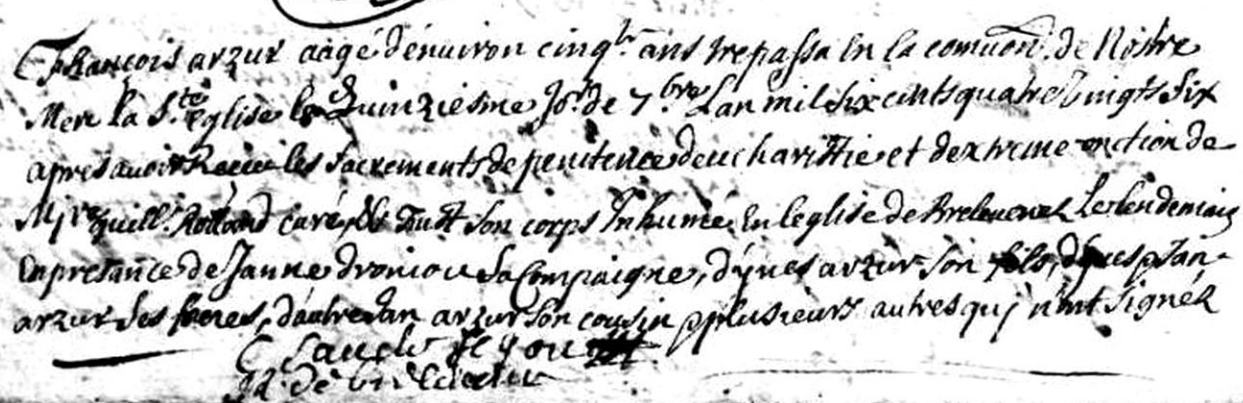 François arzur aagé d'énuiron cinq.te ans trepassa En la comuõn. de Nostre
Mere la S.te église le Quinziesme Jo.r de 7.bre Lan mil six cents quatre Vingts Six
apres auoir Receu les sacrements de penitence deucharistie et dextreme onction de
M.re Guill. Rolland curé, Et Fust son corps Inhumé En leglise de Breleuenez Le lendemain
En presance de Janne droniou sa Compaigne, d'yues arzur son fils, d'yues Jan
arzur ses freres, d'autre Jan arzur son cousin plusieurs autres qui n'ont signér